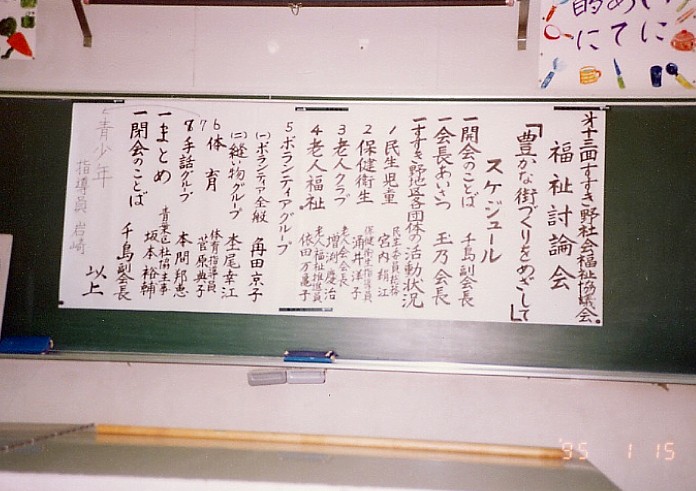 才十三回すすき野社会福祉協議会
福祉討論会
「豊かな街づくりをめざして」
スケジュール
一開会のことば 千島副会長
一会長あいさつ 玉乃会長
一すすき野地区各団体の活動状況
1民生児童 民生委員総務 宮内絹江
2保健衛生 保健衛生指導員 涌井洋子
3老人クラブ 老人会会長 増渕慶治
4老人福祉 老人福祉推進員 依田万亀子
5ボランティアグループ
(一)ボランティア全般 角田京子
(二)縫い物グループ 埜尾幸江
6体育 体育指導員 菅原典子
7
8手話グループ 本間邦恵
一まとめ 青葉区社協主事 坂本裕輔
一閉会のことば 千島副会長
以上
青少年 指導員 岩崎
めい
的に
にて
'95 1 15